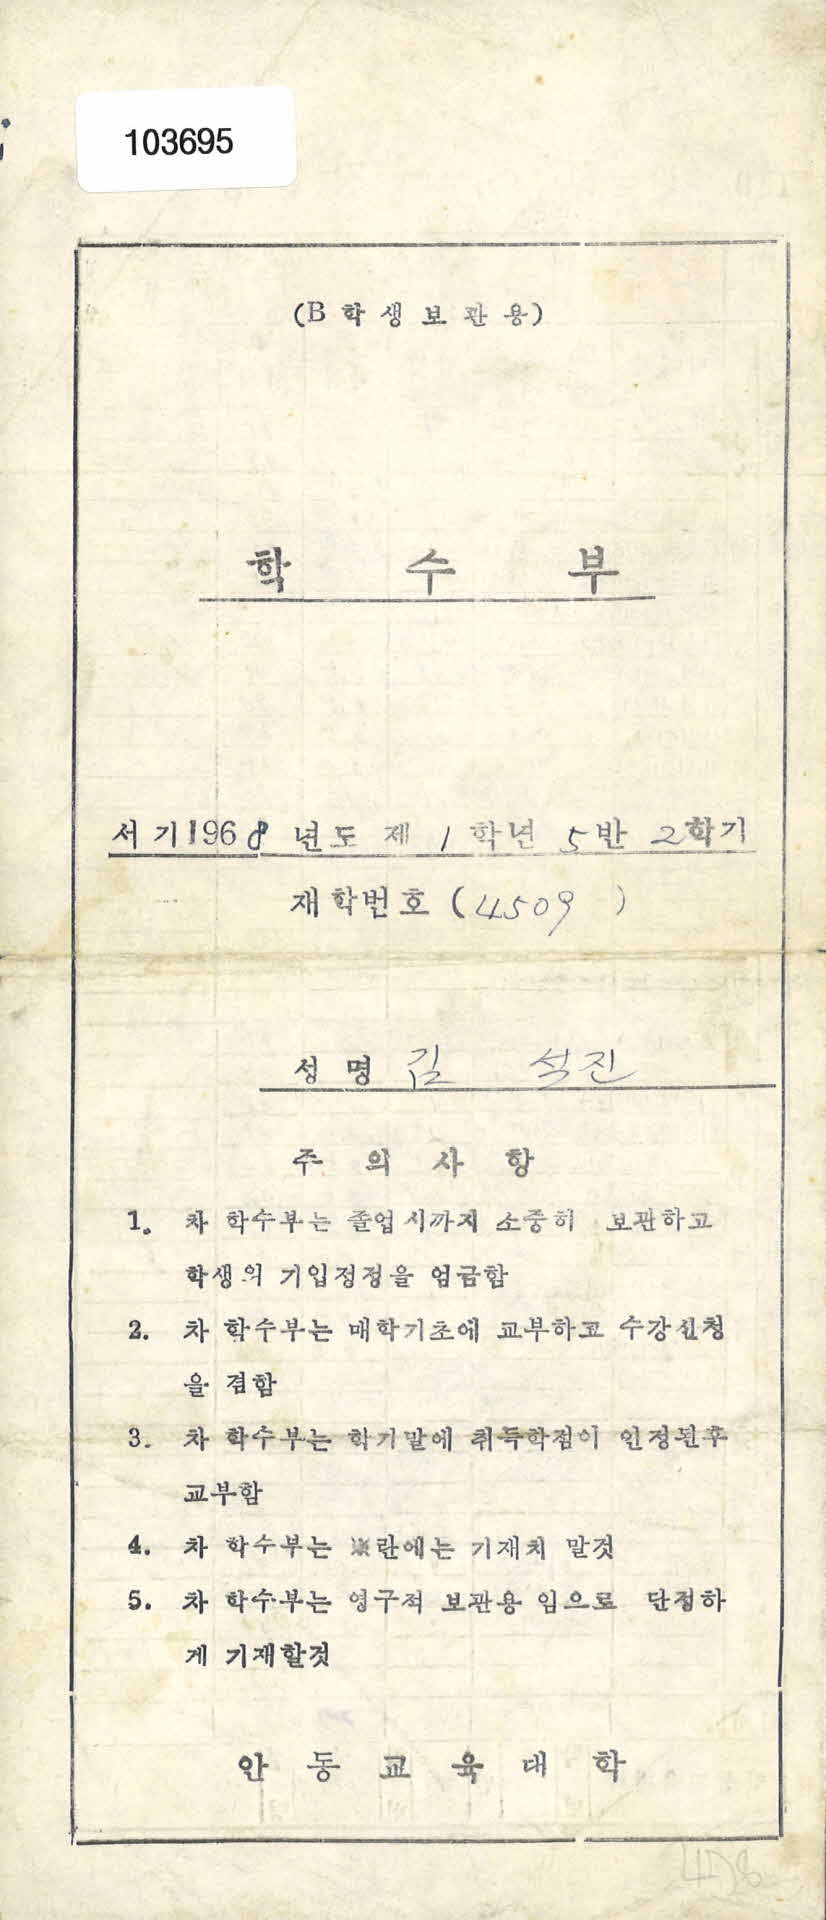 103695
(B 학생보관용)
학 수 부
서기1968 년도 제 1 학년 5반 2학기
재학번호 (4509 )
성명 김 석진
주 의 사 항
1. 차 학수부는 졸업시까지 소중히 보관하고
학생의 기입정정을 엄금함
2. 차 학수부는 매학기초에 교부하고 수강신청
을 겸함
3. 차 학수부는 학기말에 취득학점이 인정된후
교부함
4. 차 학수부는 ※란에는 기재치 말것
5. 차 학수부는 영구적 보관용 임으로 단정하
게 기재할것
안 동 교 육 대 학